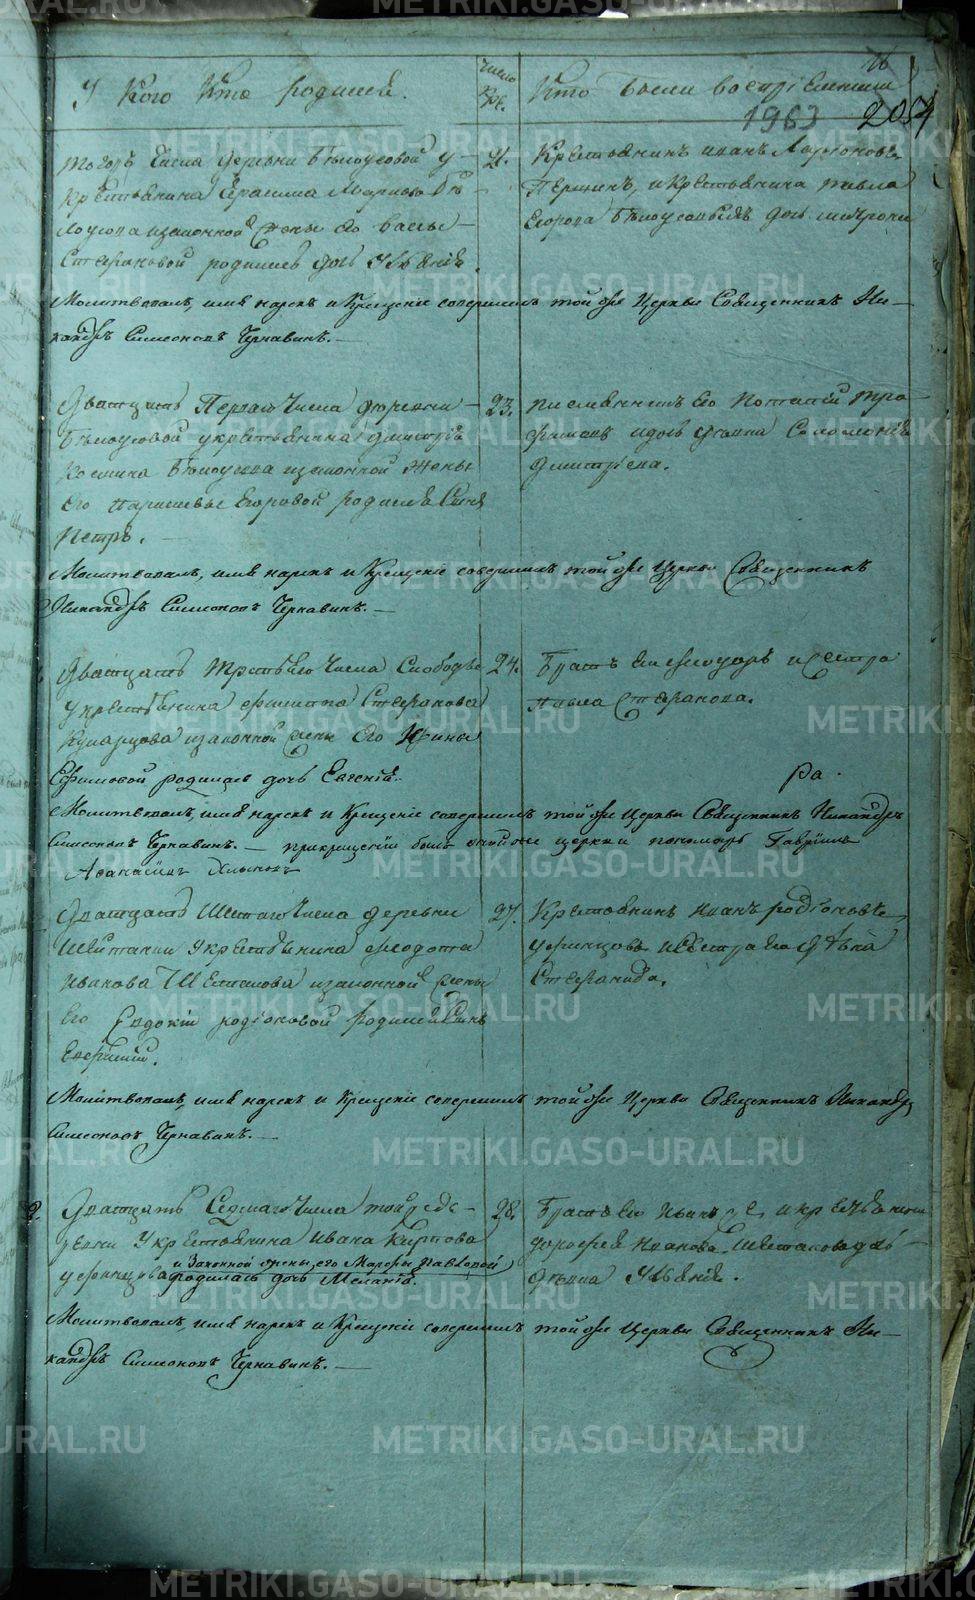 У кого кто родился.
число кре.
Кто были восприемники
16
1963
2054
Тогожъ числа деревни Бѣлоусовой у
крестьянина Герасима Маркова Бѣ-
лоусова и законной жены его Вассы
Стефановой родилась дочь
21.
Крестьянинъ Иванъ Ларионовъ
Першинъ, и крестьянина Павла
Егорова Бѣлоусовыхъ дочь Матрона
Молитвовалъ, имя нарекъ и крещеніе совершилъ той же церкви Священникъ Ни-
кандръ Симеоновъ Чернавинъ.—
Дватцать перваго числа деревни
Бѣлоусовой у крестьянина Димитрія
Космина Бѣлоусова и законной жены
его Парасковьи Егоровой родился сынъ
Петръ.
23.
его Потапій Тро-
фимовъ и дочь Соломонія
Димитріева.
Молитвовалъ, имя нарекъ и крещеніе совершилъ той же церкви Священникъ
Никандръ Симеоновъ Чернавинъ.—
Дватцать третьяго числа Слободы
у крестьянина Филиппа Стефанова
и законной жены его Ирины
Ефимовой родилась дочь Евгенія.
24.
Братъ его Феодоръ и сестра
Павла Стефанова.
Молитвовалъ, имя нарекъ и крещеніе совершилъ той же церкви Священникъ Никандръ
Симеоновъ Чернавинъ.— при крещеніи былъ оной же церкви пономарь Гавріилъ
Афанасіевъ
Дватцать шестаго числа деревни
Шайтанки у крестьянина Феодота
Иванова Шестакова и законной жены
его Евдокіи Родіоновой родился сынъ
27.
Крестьянинъ Иванъ Родіоновъ
Уфинцовъ и сестра его дѣвка
Стефанида.
Молитвовалъ, имя нарекъ и крещеніе совершилъ той же церкви Священникъ Никандръ
Симеоновъ Чернавинъ.—
Дватцать седмаго числа той же де-
ревни у крестьянина Ивана Карпова
Уфинцова и законной жены его Марфы Павловой
родилась дочь Меланія.
28.
Братъ его и крестьянина
Дорофея Иванова Шестакова дочь
Молитвовалъ, имя нарекъ и крещеніе совершилъ той же церкви Священникъ Ни-
кандръ Симеоновъ Чернавинъ.—
METRIKI.GASO-URAL.RU